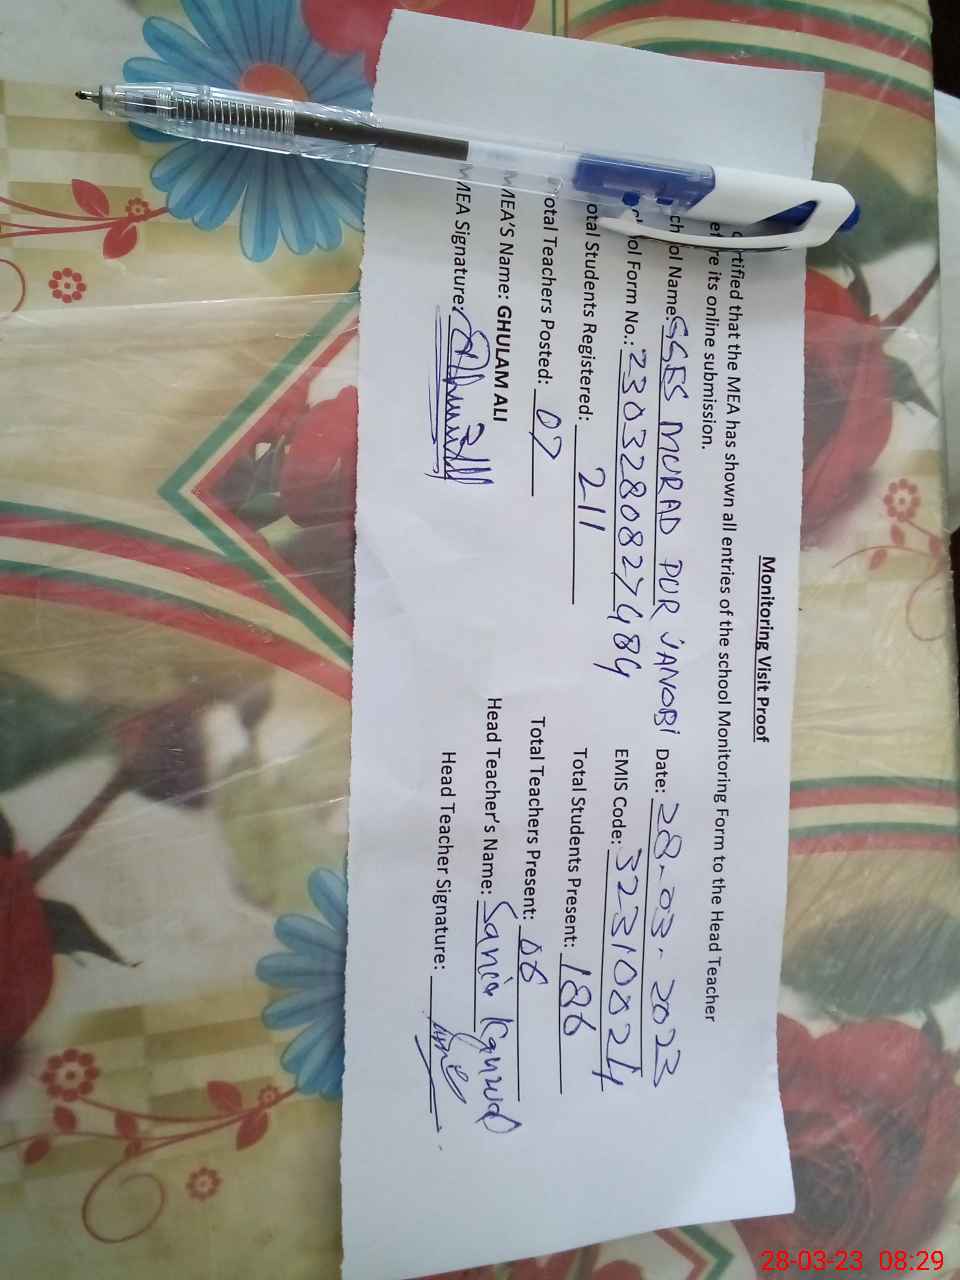 Monitoring Visit Proof
rtified that the MEA has shown all entries of the school Monitoring Form to the Head Teacher
re its online submission.
ol Name: GGES MURAD PUR JANOBI Date: 28-03-2023
ol Form No.: 2303280827484 EMIS Code: 32310024
otal Students Registered: 211 Total Students Present: 186
otal Teachers Posted: 07 Total Teachers Present: 06
MEA'S Name: GHULAM ALI Head Teacher's Name: Sania Kanwal
MEA Signature: Head Teacher Signature:
28-03-23 08:29